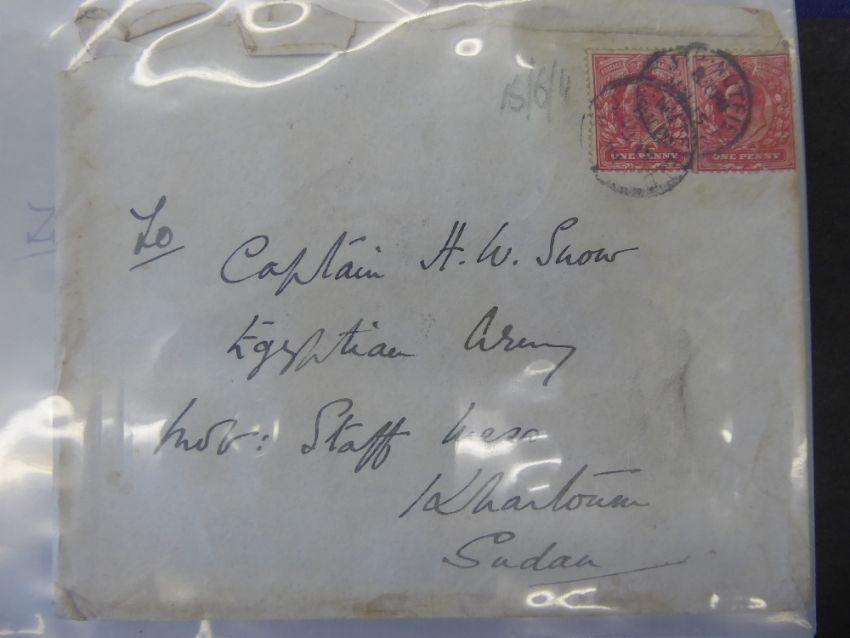 15/6/11
ONE PENNY ONE PENNY
To
Captain H. W. Snow
Egyptian Army
Staff Mess
Khartoum
Sudan